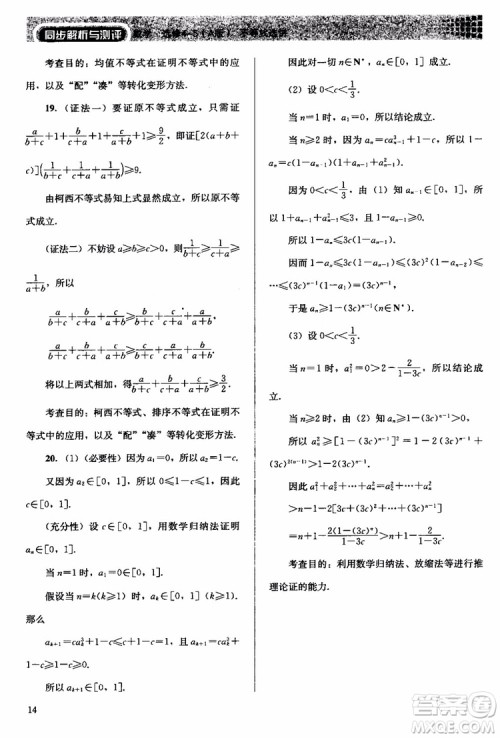 同步解析与测评
考查目的：均值不等式在证明不等式中的应
用，以及“配”“凑”等转化变形方法.
19. (证法一) 要证原不等式成立，只需证
a/(b+c)+1+b/(c+a)+1+c/(a+b)+1≥9/2，即证[2(a+b+
c)](1/(b+c)+1/(c+a)+1/(a+b))≥9.
由柯西不等式易知上式显然成立，所以原不等式
成立.
(证法二) 不妨设a≥b≥c>0，则1/(b+c)≥1/(c+a)≥
1/(a+b)，所以
a/(b+c)+b/(c+a)+c/(a+b)≥b/(b+c)+c/(c+a)+a/(a+b)，
a/(b+c)+b/(c+a)+c/(a+b)≥c/(b+c)+a/(c+a)+b/(a+b).
将以上两式相加，得a/(b+c)+b/(c+a)+c/(a+b)≥3/2.
考查目的：柯西不等式、排序不等式在证明不
等式中的应用，以及“配”“凑”等转化变形方法.
20. (1) (必要性) 因为a₁=0，所以a₂=1-c.
又因为a₂∈[0，1]，所以0≤1-c≤1，即c∈
[0，1].
(充分性) 设c∈[0，1]，用数学归纳法证明
aₙ∈[0，1].
当n=1时，a₁=0∈[0，1].
假设当n=k(k≥1)时，aₖ∈[0，1]成立.
那么
aₖ₊₁=caₖ³+1-c≤c+1-c=1，且aₖ₊₁=caₖ³+
1-c≥1-c≥0.
所以aₖ₊₁∈[0，1].
由数学归纳法知，aₙ∈[0，1]对所有n∈N*成立.
因此结论对所有n∈N*成立.
(2) 设0<c<1/3.
当n=1时，a₁=0，所以结论成立.
当n≥2时，因为aₙ=caₙ₋₁³+1-c，所以1-
aₙ=c(1-aₙ₋₁)(1+aₙ₋₁+aₙ₋₁²).
因为0<c<1/3，由(1)知aₙ₋₁∈[0，1]，所以
1+aₙ₋₁+aₙ₋₁²≤3，且1-aₙ₋₁≥0.
所以1-aₙ≤3c(1-aₙ₋₁).
因而1-aₙ≤3c(1-aₙ₋₁)≤(3c)²(1-aₙ₋₂)≤
…≤(3c)ⁿ⁻¹(1-a₁)=(3c)ⁿ⁻¹.
所以aₙ≥1-(3c)ⁿ⁻¹(n∈N*).
(3) 设0<c<1/3.
当n=1时，a₁²=0>2-2/(1-3c)，所以结论成立.
当n≥2时，由(2)知aₙ≥1-(3c)ⁿ⁻¹>0.
所以aₙ²≥[1-(3c)ⁿ⁻¹]²=1-2(3c)ⁿ⁻¹+
(3c)²⁽ⁿ⁻¹⁾>1-2(3c)ⁿ⁻¹.
所以a₁²+a₂²+…+aₙ²=a₂²+…+aₙ²
>n-1-2[3c+(3c)²+…+(3c)ⁿ⁻¹]
=n+1-2(1-(3c)ⁿ)/(1-3c)>n+1-2/(1-3c).
考查目的：利用数学归纳法、放缩法等进行推
理论证的能力.
14